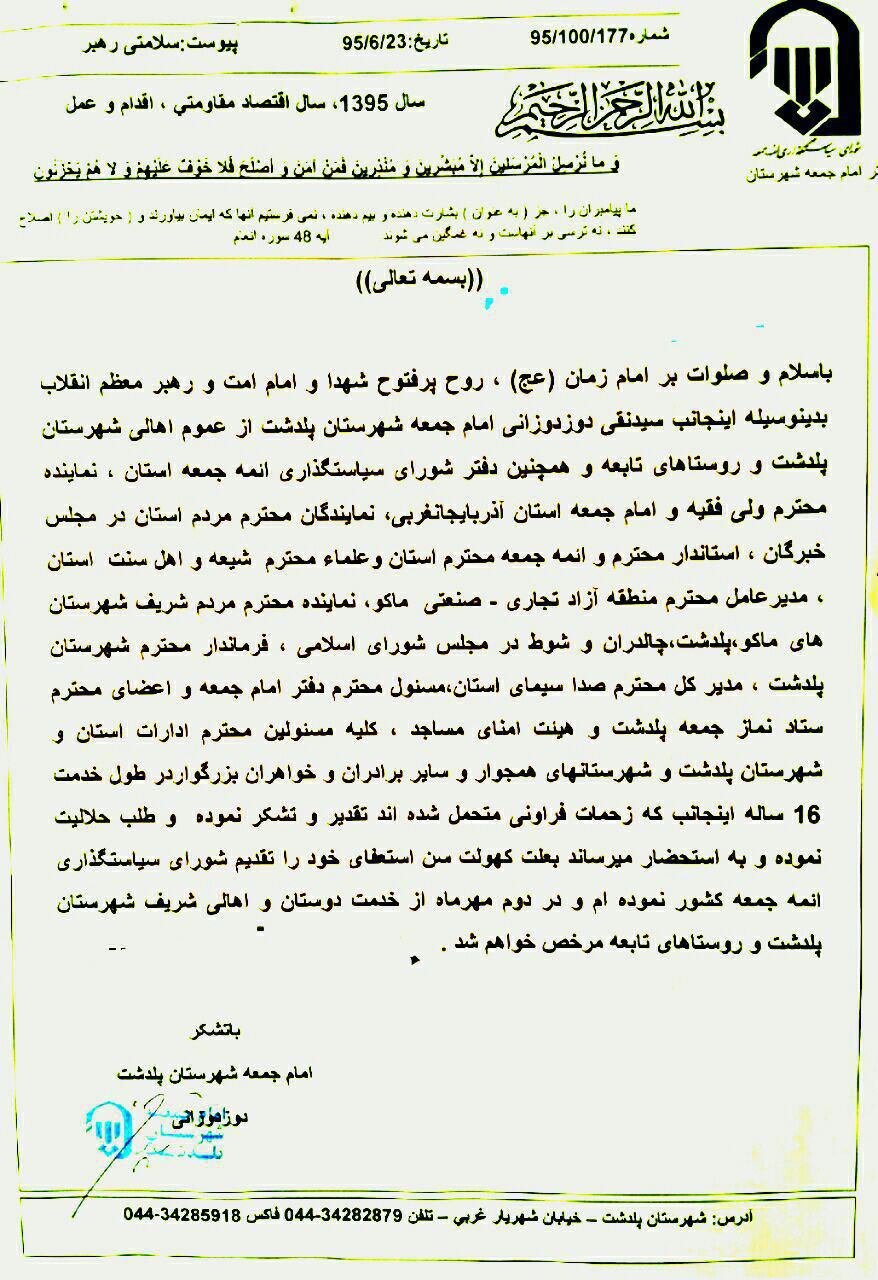 شماره95/100/177
تاریخ:95/6/23
پیوست:سلامتی رهبر
بسم الله الرحمن الرحیم
سال 1395، سال اقتصاد مقاومتي ، اقدام و عمل
شورای سیاستگذاری ائمه جمعه
امام جمعه شهرستان
وَ ما نُرْسِلُ الْمُرْسَلينَ إِلاَّ مُبَشِّرينَ وَ مُنْذِرينَ فَمَنْ آمَنَ وَ أَصْلَحَ فَلا خَوْفٌ عَلَيْهِمْ وَ لا هُمْ يَحْزَنُونَ
ما پیامبران را ، جز ( به عنوان ) بشارت دهنده و بیم دهنده ، نمی فرستیم آنها که ایمان بیاورند و ( خویشتن را ) اصلاح
کنند ، نه ترسی بر آنهاست و نه غمگین می شوند آیه 48 سوره انعام
((بسمه تعالی))
باسلام و صلوات بر امام زمان (عج) ، روح پرفتوح شهدا و امام امت و رهبر معظم انقلاب
بدینوسیله اینجانب سیدنقی دوزدوزانی امام جمعه شهرستان پلدشت از عموم اهالی شهرستان
پلدشت و روستاهای تابعه و همچنین دفتر شورای سیاستگذاری ائمه جمعه استان ، نماینده
محترم ولی فقیه و امام جمعه استان آذربایجانغربی، نمایندگان محترم مردم استان در مجلس
خبرگان ، استاندار محترم و ائمه جمعه محترم استان وعلماء محترم شیعه و اهل سنت استان
، مدیرعامل محترم منطقه آزاد تجاری - صنعتی ماکو، نماینده محترم مردم شریف شهرستان
های ماکو،پلدشت،چالدران و شوط در مجلس شورای اسلامی ، فرماندار محترم شهرستان
پلدشت ، مدیر کل محترم صدا سیمای استان،مسئول محترم دفتر امام جمعه و اعضای محترم
ستاد نماز جمعه پلدشت و هیئت امنای مساجد ، کلیه مسئولین محترم ادارات استان و
شهرستان پلدشت و شهرستانهای همجوار و سایر برادران و خواهران بزرگواردر طول خدمت
16 ساله اینجانب که زحمات فراونی متحمل شده اند تقدیر و تشکر نموده و طلب حلالیت
نموده و به استحضار میرساند بعلت کهولت سن استعفای خود را تقدیم شورای سیاستگذاری
ائمه جمعه کشور نموده ام و در دوم مهرماه از خدمت دوستان و اهالی شریف شهرستان
پلدشت و روستاهای تابعه مرخص خواهم شد .
باتشکر
امام جمعه شهرستان پلدشت
دوزدوزانی
امام جمعه
شهرستان
پلدشت
آدرس: شهرستان پلدشت – خیابان شهریار غربي – تلفن 34282879-044 فاکس 34285918-044